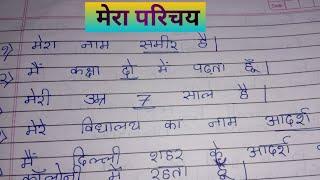 मेरा परिचय
१) मेरा नाम समीर है।
२) मैं कक्षा दो में पढ़ता हूँ।
मेरी उम्र 7 साल है।
मेरे विद्यालय का नाम आदर्श
मैं दिल्ली शहर के आदर्श
कॉलोनी में रहता हूँ।